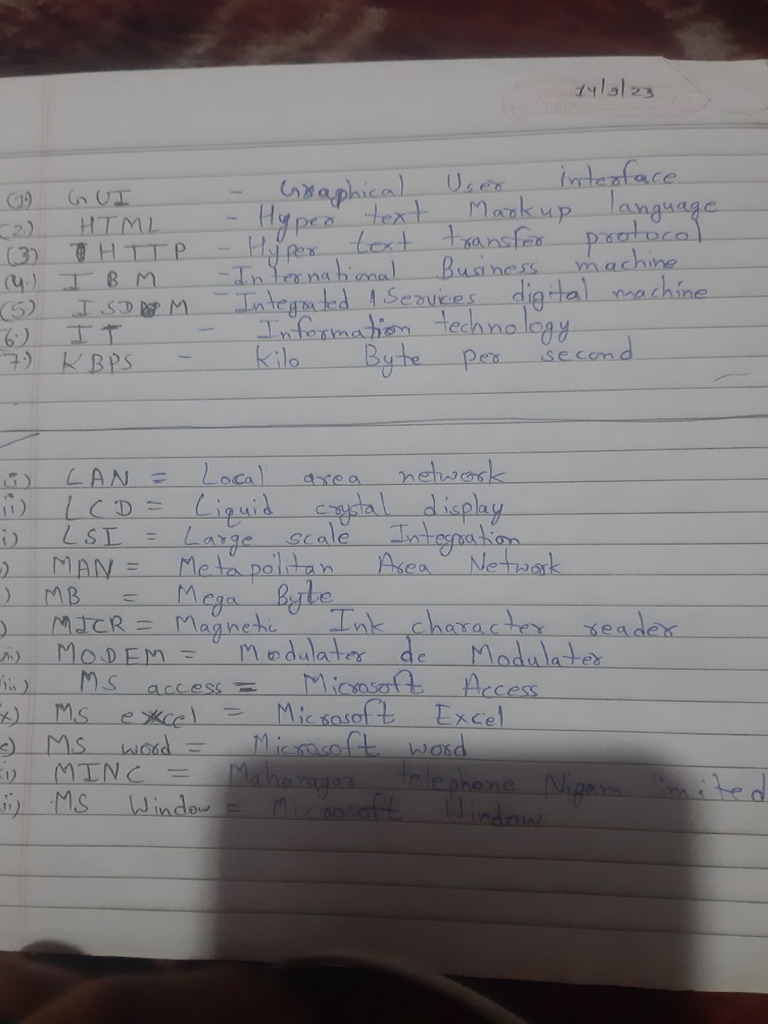 14/9/23
(1) GUI - Graphical User interface
(2) HTML - Hyper text Markup language
(3) HTTP - Hyper text transfer protocol
(4.) IBM - International Business machine
(5) ISDM - Integrated Services digital machine
6.) IT - Information technology
7.) KBPS - Kilo Byte per second
i) LAN = Local area network
ii) LCD = Liquid crystal display
i) LSI = Large scale Integration
) MAN = Metapolitan Area Network
) MB = Mega Byte
) MICR = Magnetic Ink character reader
ii) MODEM = Modulater de Modulater
iii) MS access = Microsoft Access
x) MS excel = Microsoft Excel
) MS word = Microsoft word
i) MINC = Mahanagar telephone Nigam limited
ii) MS Window = Microsoft Window